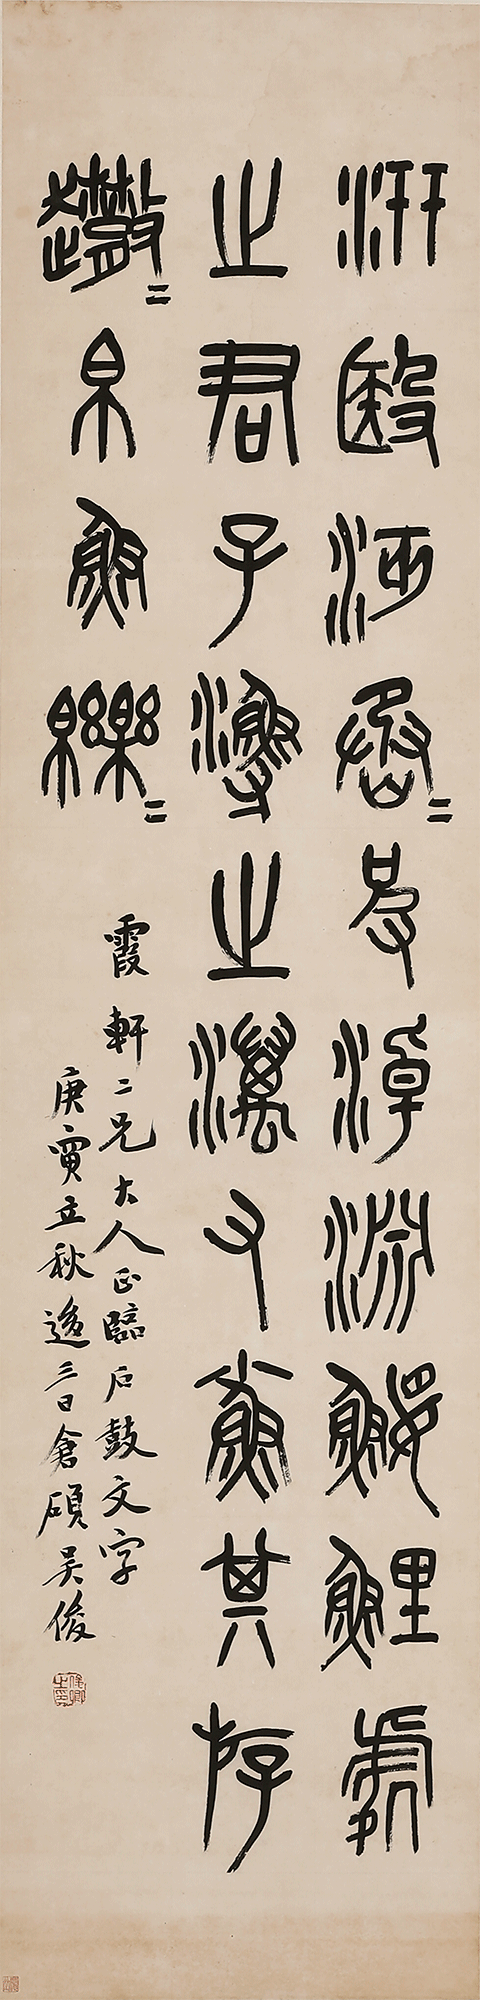 汧殹沔丞=皮淖淵鰋鯉處
之君子漁之澫又小魚其斿
=帛魚皪=
霞軒二兄大人正臨石鼓文字
庚寅立秋後三日倉碩吳俊
俊卿之印